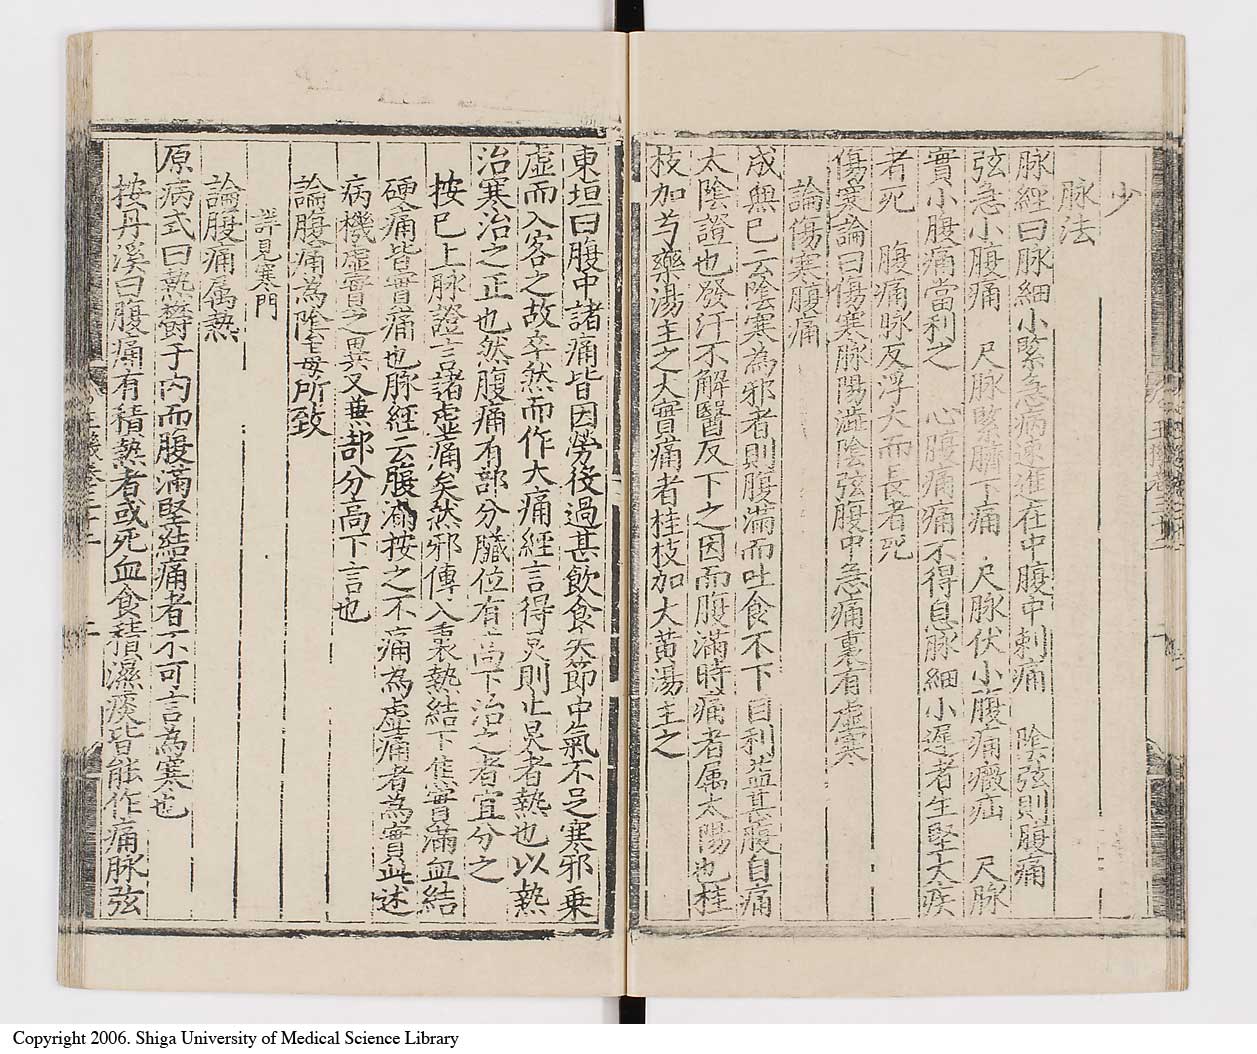 少
脉法
脉經曰脉細小緊急病速進在中腹中刺痛　陰弦則腹痛
弦急小腹痛　尺脉緊臍下痛　尺脉伏小腹痛癥疝　尺脉
實小腹痛當利之　心腹痛痛不得息脉細小遲者生堅大疾
者死　腹痛脉反浮大而長者死
傷寒論曰傷寒脉陽澁陰弦腹中急痛裏有虛寒
論傷寒腹痛
成無已云陰寒為邪者則腹滿而吐食不下自利益甚腹自痛
太陰證也發汗不解醫反下之因而腹滿時痛者属太陽也桂
枝加芍藥湯主之大實痛者桂枝加大黄湯主之
東垣曰腹中諸痛皆因勞役過甚飲食失節中氣不足寒邪乗
虛而入客之故卒然而作大痛經言得炅則止炅者熱也以熱
治寒治之正也然腹痛有部分臓位有高下治之者宜分之
按已上脉證言諸虛痛矣然邪傳入裏熱結下焦實滿血結
硬痛皆實痛也脉經云腹滿按之不痛為虛痛者為實此述
病機虛實之異又兼部分高下言也
論腹痛為陰毒所致
詳見寒門
論腹痛属熱
原病式曰熱欝于内而腹滿堅結痛者不可言為寒也
按丹溪曰腹痛有積熱者或死血食積濕痰皆能作痛脉弦
Copyright 2006. Shiga University of Medical Science Library